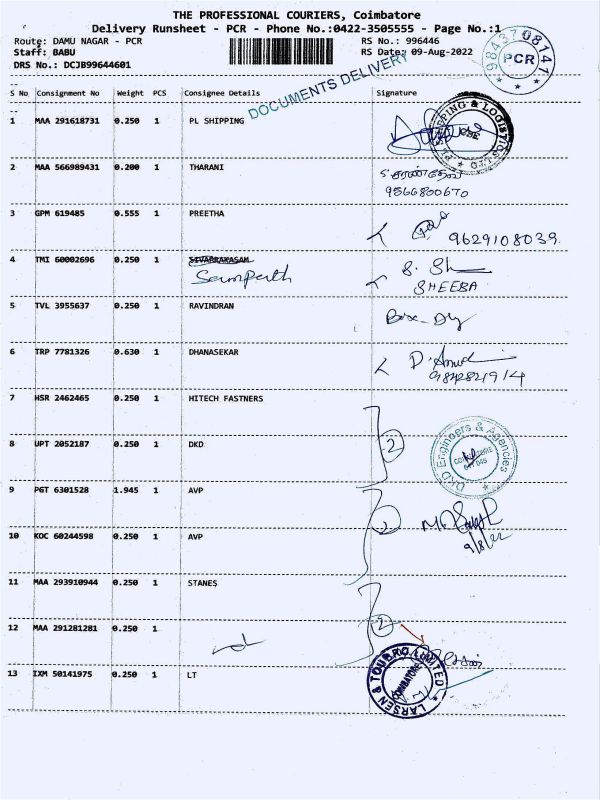 THE PROFESSIONAL COURIERS, Coimbatore
Delivery Runsheet - PCR - Phone No.:0422-3505555 - Page No.:1
Route: DAMU NAGAR - PCR RS No.: 996446
Staff: BABU RS Date: 09-Aug-2022
DRS No.: DCJB99644601
9843708141
PCR
DOCUMENTS DELIVERY
S No Consignment No Weight PCS Consignee Details Signature
1 MAA 291618731 0.250 1 PL SHIPPING
PL SHIPPING & LOGISTICS LTD
2 MAA 566989431 0.200 1 THARANI
9566800670
3 GPM 619485 0.555 1 PREETHA
9629108039
4 TMI 60002696 0.250 1 SIVAPRAKASAM
Sampath
S. Sh
SHEEBA
5 TVL 3955637 0.250 1 RAVINDRAN
6 TRP 7781326 0.630 1 DHANASEKAR
7 HSR 2462465 0.250 1 HITECH FASTNERS
8 UPT 2052187 0.250 1 DKD
2
DKD Engineers & Agencies
9 PGT 6301528 1.945 1 AVP
2
10 KOC 60244598 0.250 1 AVP
9/8/22
11 MAA 293910944 0.250 1 STANES
12 MAA 291281281 0.250 1
2
13 IXM 50141975 0.250 1 LT
LARSEN & TOUBRO LIMITED
COIMBATORE